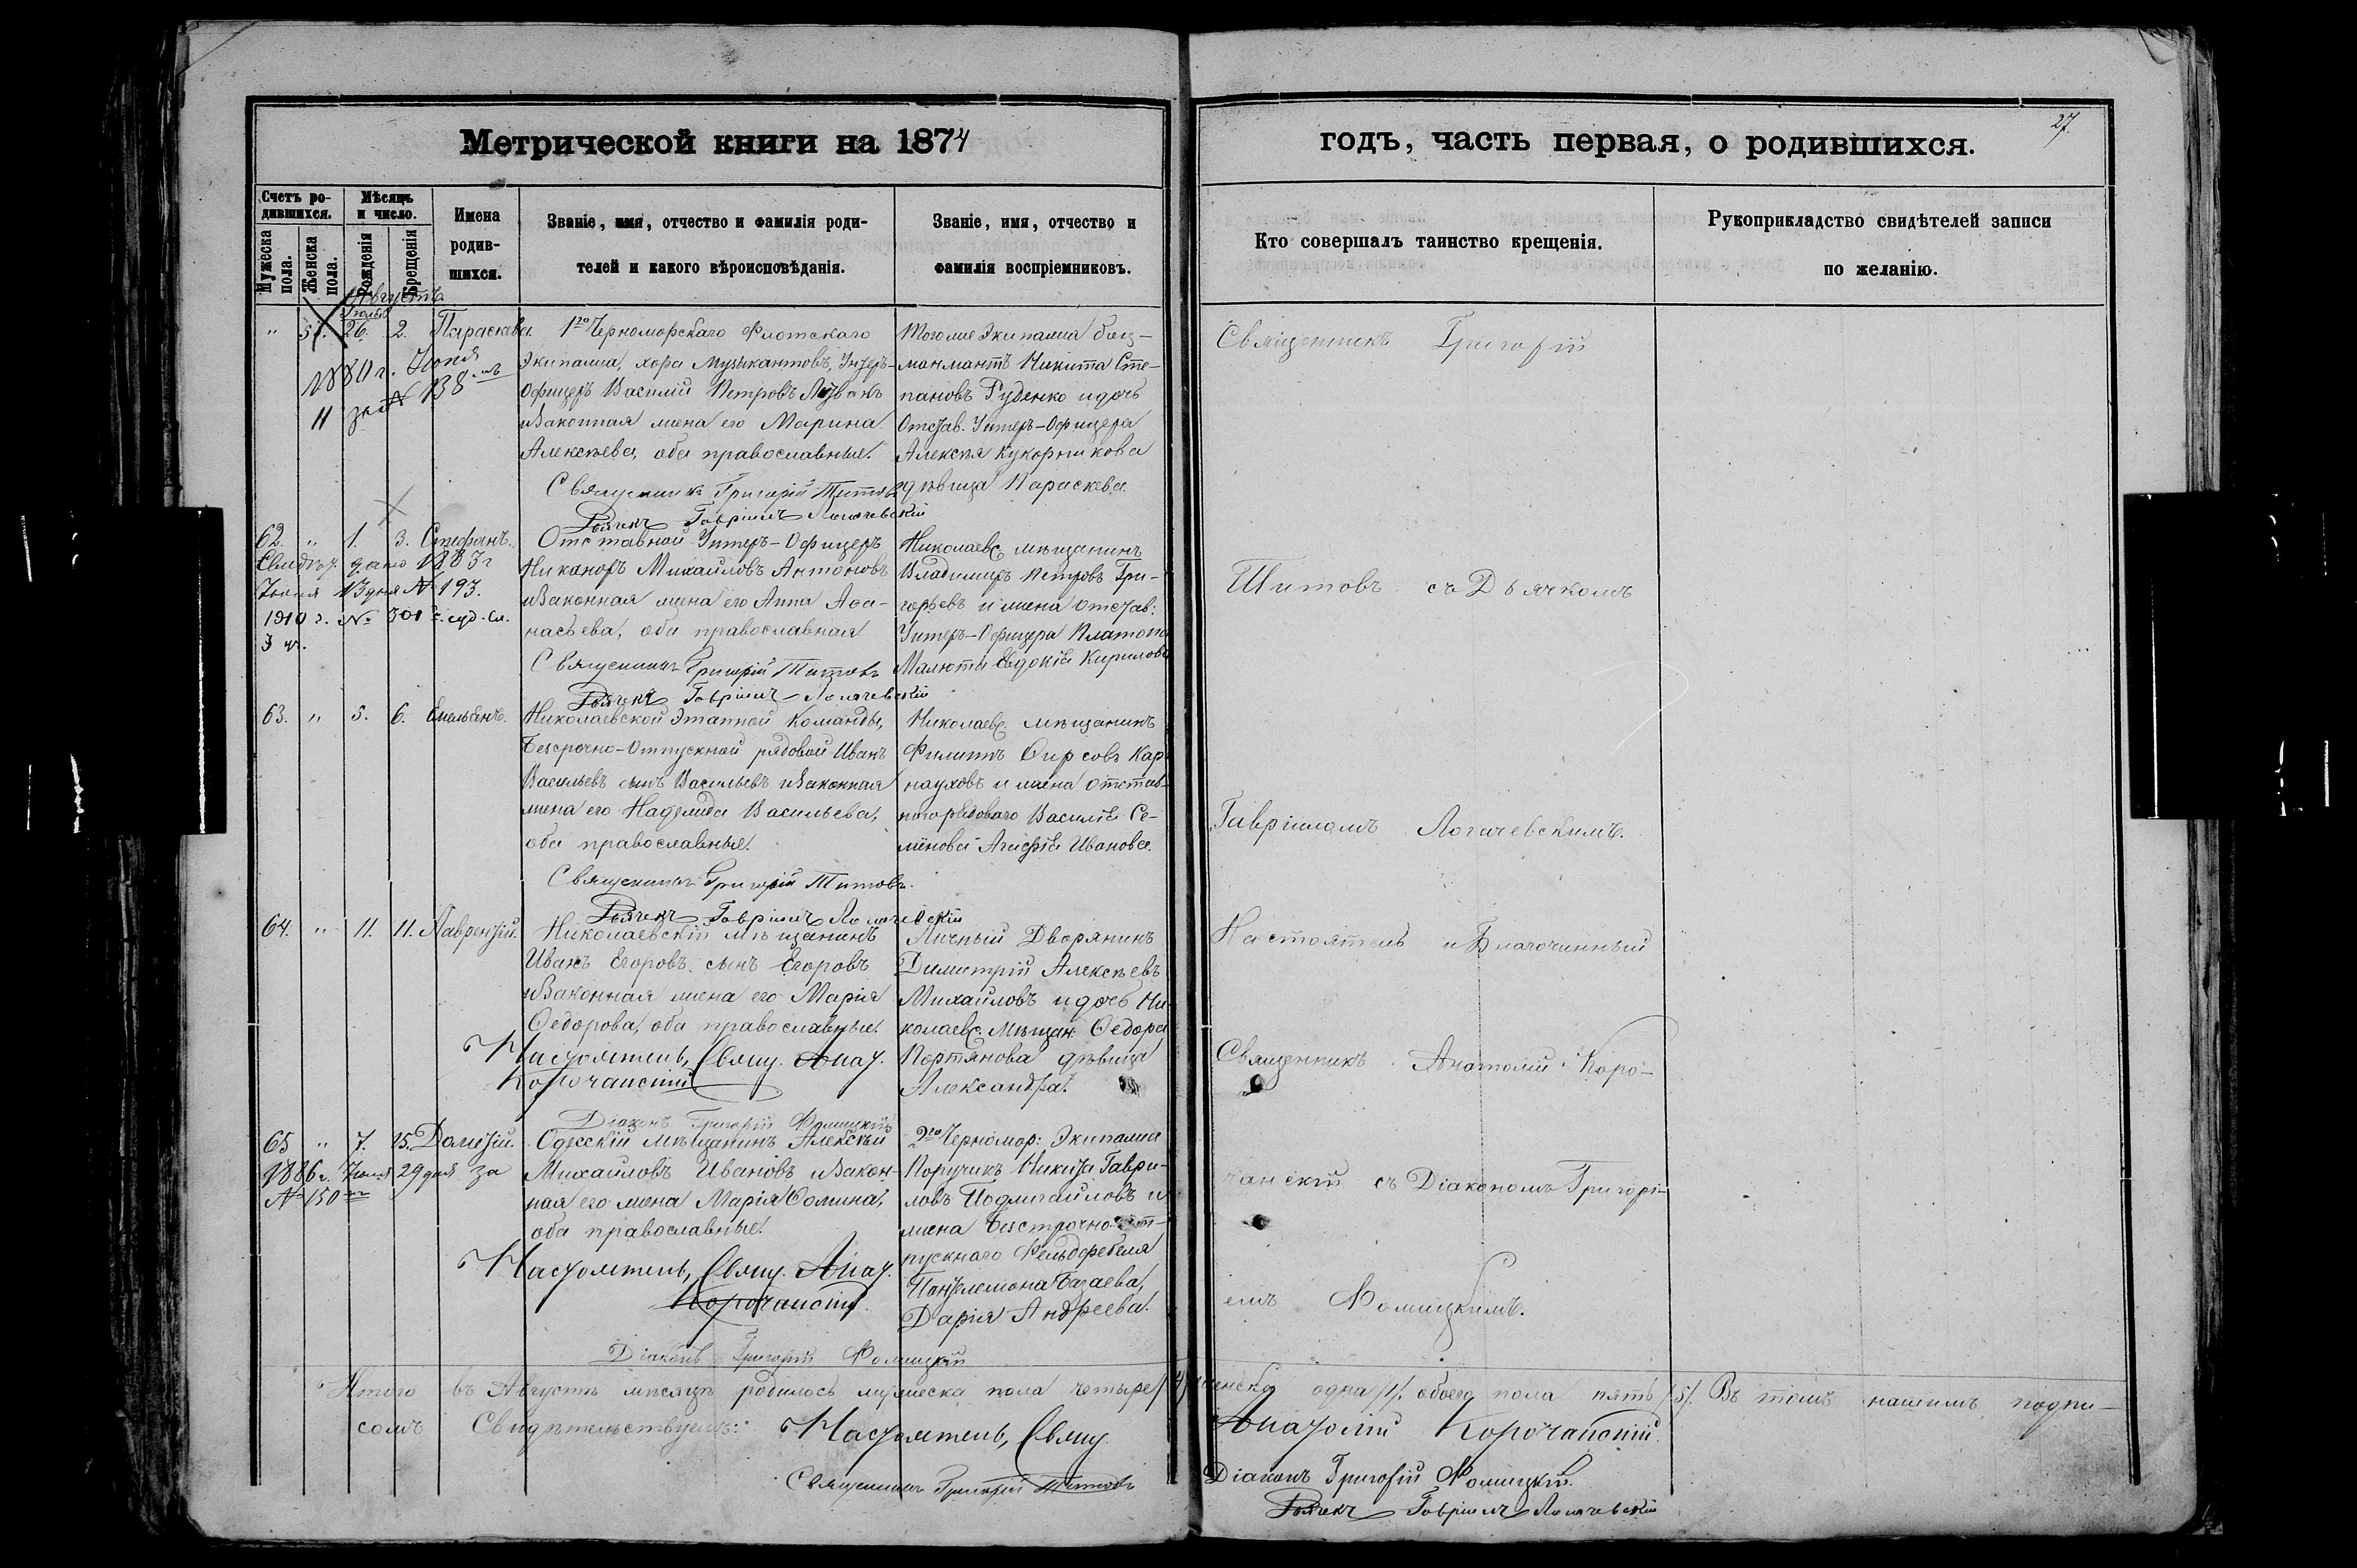 Метрической книги на 1874
годъ, часть первая, о родившихся.
27.
Счетъ ро-
дившихся.
Мужеска пола.
Женска пола.
Мѣсяцъ
и число.
Рожденія
Крещенія
Имена
родив-
шихся.
Званіе, имя, отчество и фамилія роди-
телей и какого вѣроисповѣданія.
Званіе, имя, отчество и
фамилія воспріемниковъ.
Кто совершалъ таинство крещенія.
Рукоприкладство свидѣтелей записи
по желанію.
Августъ
Іюль
" 57. 26. 2. Параскева
1880 г. Іюня
11 за № 138
1го Черноморскаго Флотскаго
Экипажа, хора Музыкантовъ, Унтеръ-
Офицеръ Василій Петровъ
и Законная жена его Марина
Алексѣева, оба православные.
Священникъ Григорій Титовъ
Дьячекъ Гавріилъ Логачевскій
Тогоже Экипажа боц-
манматъ Никита Сте-
пановъ Руденко и дочь
Отстав. Унтеръ-Офицера
Алексѣя Кукорникова
дѣвица Параскева.
62. " 1. 3. Стефанъ.
Свидѣт. дано 1883 г
Іюля 13 дня № 193.
1910 г. № 301
Отставной Унтеръ-Офицеръ
Никаноръ Михайловъ Антоновъ
и Законная жена его Анна Аѳа-
насьева, оба православная
Священникъ Григорій Титовъ
Дьячекъ Гавріилъ Логачевскій
Николаевс. мѣщанинъ
Владимиръ Петровъ Гри-
горьевъ и жена отстав:
Унтеръ-Офицера Платона
Малюти Евдокія Кирилова
63. " 5. 6. Емельянъ.
Николаевской Этапной Команды,
Безсрочно-Отпускной рядовой Иванъ
Васильевъ сынъ Васильевъ и Законная
жена его Надежда Васильева,
оба православные.
Священникъ Григорій Титовъ.
Дьячекъ Гавріилъ Логачевскій
Николаевс. мѣщанинъ
Филипъ Ѳирсовъ Кар-
науховъ и жена отстав-
наго рядоваго Василія Се-
мёнова Агафія Иванова.
64. " 11. 11. Лаврентій.
Николаевскій мѣщанинъ
Иванъ Егоровъ сынъ Егоровъ
и Законная жена его Марія
Ѳедорова, оба православные.
Настоятель, Свящ. Анат.
Корочанскій
Діаконъ Григорій Фомицкій
Личный Дворянинъ
Димитрій Алексѣевъ
Михайловъ и дочь Ни-
колаевс. Мѣщан. Ѳедора
Портянова дѣвица
Александра.
65 " 7. 15. Доментій.
1886 г. Іюля 29 дня за
№ 150
Одесскій мѣщанинъ Алексѣй
Михайловъ Ивановъ и Закон-
ная его жена Марія Ѳомина,
оба православные.
Настоятель, Свящ. Анат.
Корочанскій.
Діаконъ Григорій Фомицкій
2го Черномор: Экипажа
Поручикъ Никита Гаври-
ловъ Подмигайловъ и
жена безсрочно-от-
пускнаго Фельдфебеля
Пантелемона Базаева,
Дарія Андреева.
Священникъ Григорій
Титовъ съ Дьячкомъ
Гавріиломъ Логачевскимъ.
Настоятель и Благочинный
Священникъ Анатолій Коро-
чанскій съ Діакономъ Григорі-
емъ Фомицкимъ.
Итого въ Августѣ мѣсяцѣ родилось мужеска пола четыре /4/ женска одна /1/. обоего пола пять /5/. Въ томъ нашимъ подпи-
сомъ Свидѣтельствуемъ: Настоятель, Свящ. Анатолій Корочанскій.
Священникъ Григорій Титовъ
Діаконъ Григорій Фомицкій.
Дьячекъ Гавріилъ Логачевскій